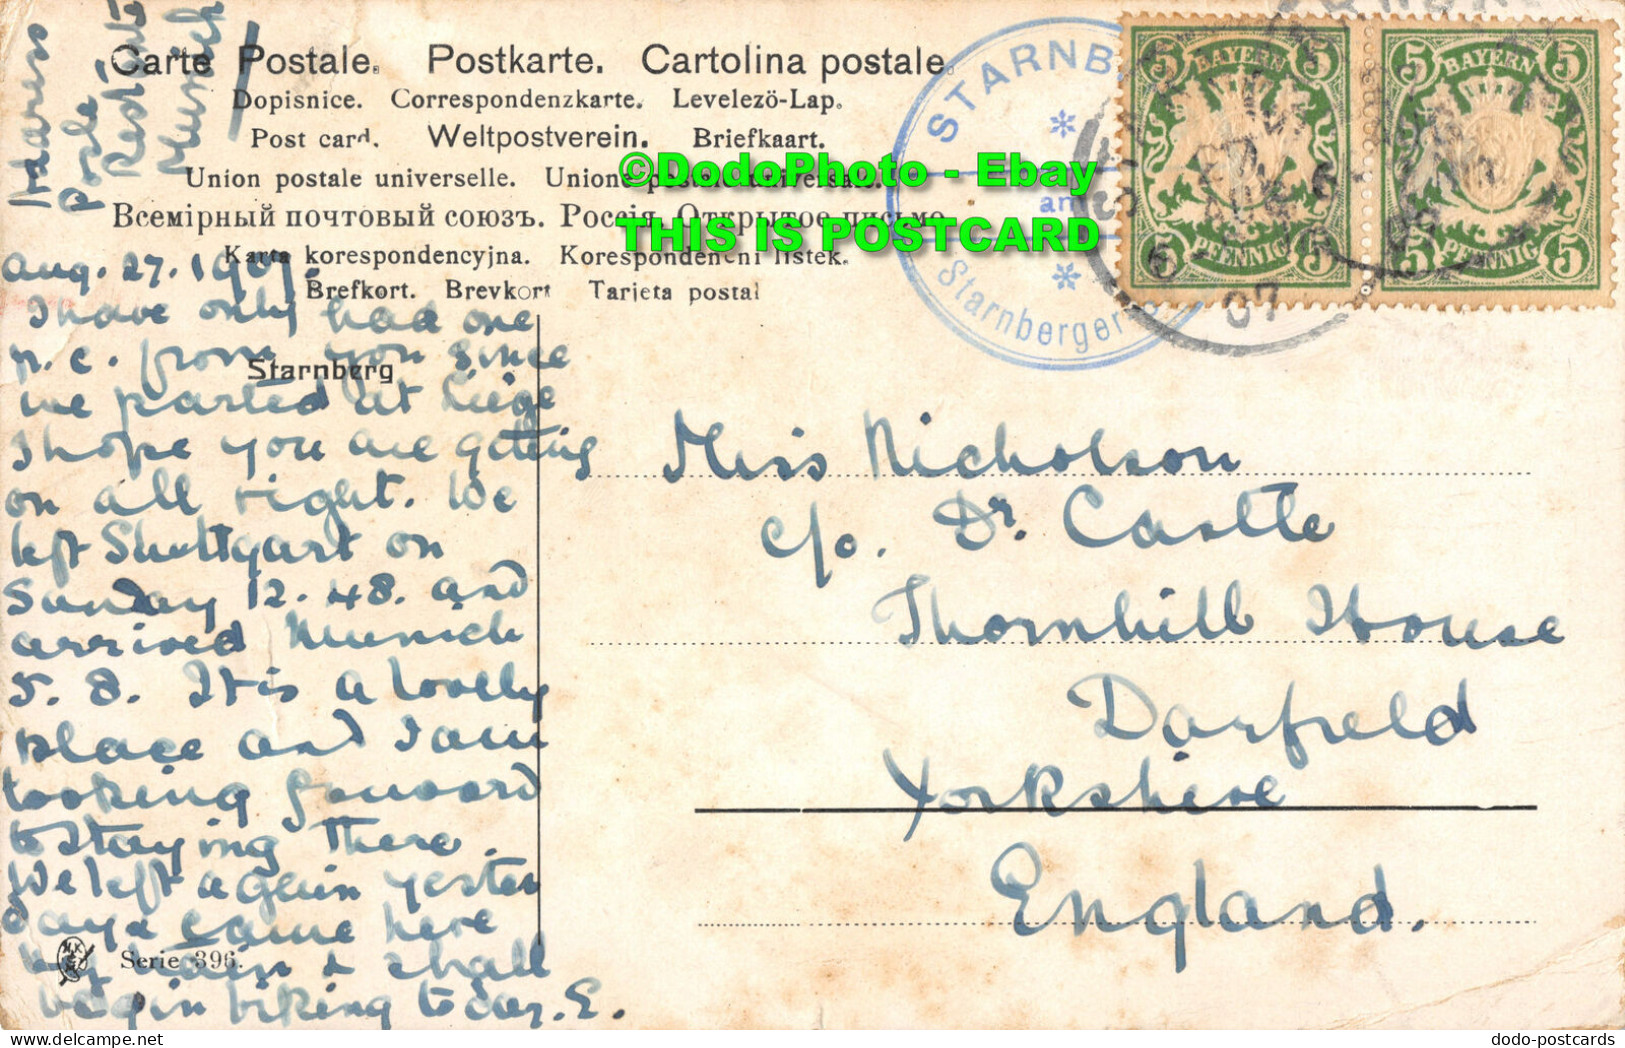 Address
Poste
Restante
Munich
Carte Postale. Postkarte. Cartolina postale.
Dopisnice. Correspondenzkarte. Levelező-Lap.
Post card. Weltpostverein. Briefkaart.
Union postale universelle. Unione postale universale.
Всемірный почтовый союзъ. Россія. Открытое письмо.
Karta korespondencyjna. Korespondenční listek.
Brefkort. Brevkort Tarjeta postal
©DodoPhoto - Ebay
THIS IS POSTCARD
STARNB
am
Starnberger
5 BAYERN 5
5 PFENNIG 5
5 BAYERN 5
5 PFENNIG 5
07
Starnberg
Aug. 27. 1907.
I have only had one
p.c. from you since
we parted at Liege
I hope you are getting
on all right. We
left Stuttgart on
Sunday 12.48. and
arrived Munich
5.8. It is a lovely
place and I am
looking forward
to staying there.
We left again yester
day & came here
by train & shall
begin biking today. E.
Miss Nicholson
c/o. Dr. Castle
Thornhill House
Darfield
Yorkshire
England.
Serie 396.
dodo-postcards